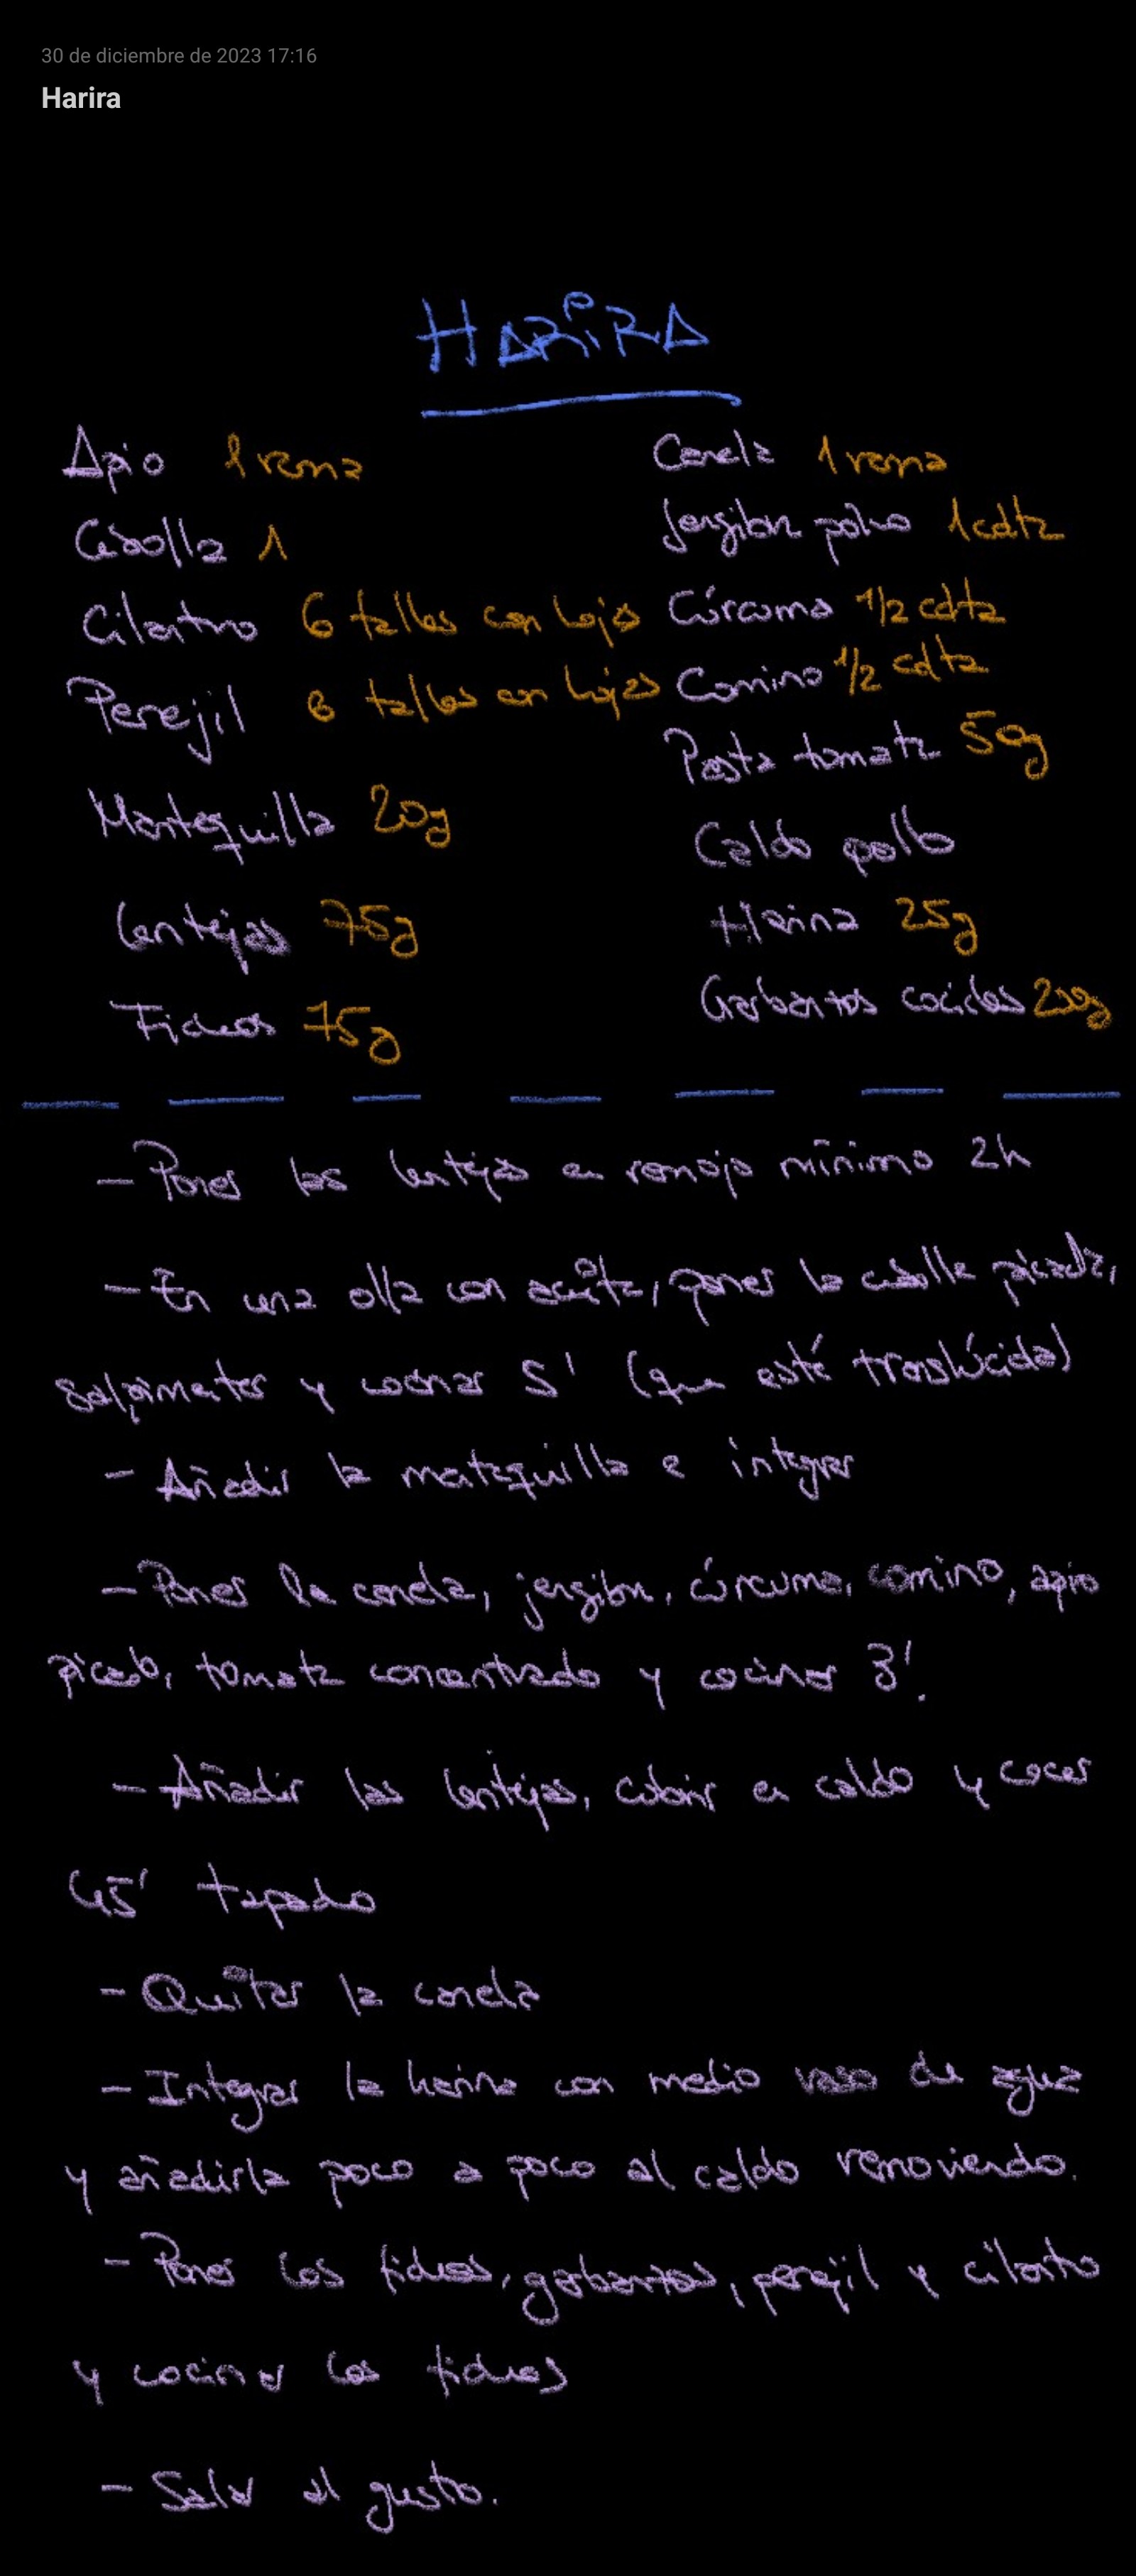 30 de diciembre de 2023 17:16
Harira
HARIRA
Apio 1 rama
Cebolla 1
Cilantro 6 tallos con hojas
Perejil 6 tallos con hojas
Mantequilla 20g
Lentejas 75g
Fideos 75g
Canela 1 rama
Jengibre polvo 1 cdta
Cúrcuma 1/2 cdta
Comino 1/2 cdta
Pasta tomate 50g
Caldo pollo
Harina 25g
Garbanzos cocidos
— Poner las lentejas en remojo mínimo 2h
— En una olla con aceite, poner la cebolla picada,
salpimentar y cocinar 5' (que esté traslúcida)
— Añadir la mantequilla e integrar
— Poner la canela, jengibre, cúrcuma, comino, apio
picado, tomate concentrado y cocinar 3'.
— Añadir las lentejas, cubrir en caldo y cocer
45' tapado
— Quitar la canela
— Integrar la harina con medio vaso de agua
y añadirla poco a poco al caldo removiendo.
— Poner los fideos, garbanzos, perejil y cilantro
y cocinar los fideos
— Salar al gusto.